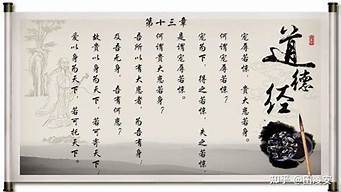 道德经
第十三章
宠辱若惊,贵大患若身。
何谓宠辱若惊?
宠为下,得之若惊,失之若惊,
是谓宠辱若惊。
何谓贵大患若身?
吾所以有大患者,为吾有身,
及吾无身,吾有何患?
故贵以身为天下,若可寄天下;
爱以身为天下,若可托天下。
知乎